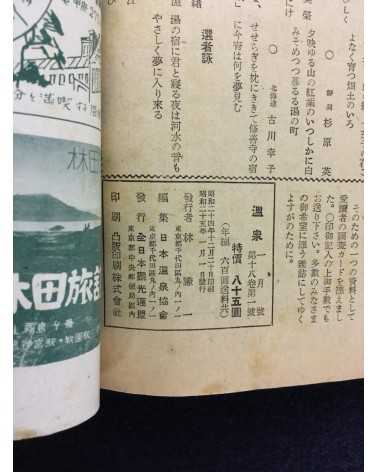 よなく育つ畑土のいろ
○ 静岡 杉原英
夕映ゆる山の紅葉のいつしかに白
みそめつつ暮るる湯の町
○ 北海道 古川幸子
せせらぎを枕にききて修善寺の宿
に今宵は何を夢見む
選者詠
湯の宿に君と寝る夜は河水の音も
やさしく夢に入り來る
そのための一つの資料として
愛讀者の調査カードを添えまし
た。○印御記入の上御手數でも
お送り下さい。多數のみなさま
の御希望に添う雜誌にしてゆく
よすがのために。
溫泉 第十八卷第一號
月號
特價 八十五圓
昭和二十四年十二月二十日印刷
昭和二十五年一月一日發行
發行者 林謙一
東京都千代田區丸ノ内一ノ一
編集 日本溫泉協會
東京都千代田區丸ノ内一ノ一
發行 全日本觀光連盟
印刷 凸版印刷株式會社
林田
林田旅